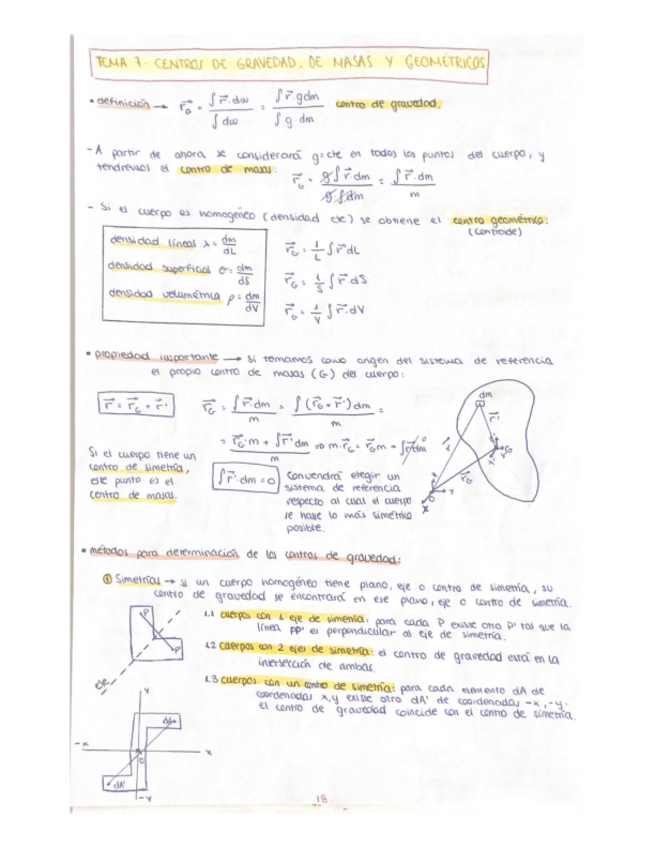 TEMA 7: CENTROS DE GRAVEDAD, DE MASAS Y GEOMÉTRICOS
• definición → r⃗G = ∫ r⃗·dω / ∫ dω = ∫ r⃗·g dm / ∫ g·dm centro de gravedad.
- A partir de ahora se considerará g=cte en todos los puntos del cuerpo, y
tendremos el centro de masas: r⃗G = g∫ r⃗·dm / g∫dm = ∫ r⃗·dm / m
- Si el cuerpo es homogéneo (densidad cte) se obtiene el centro geométrico:
(centroide)
densidad lineal λ = dm/dL
densidad superficial σ = dm/dS
densidad volumétrica ρ = dm/dV
r⃗G = 1/L ∫ r⃗ dL
r⃗G = 1/S ∫ r⃗ dS
r⃗G = 1/V ∫ r⃗·dV
• propiedad importante → si tomamos como origen del sistema de referencia
el propio centro de masas (G) del cuerpo:
r⃗ = r⃗G + r⃗'
r⃗G = ∫ r⃗ dm / m = ∫ (r⃗G + r⃗') dm / m =
= r⃗G·m + ∫ r⃗' dm / m ⇒ m·r⃗G = r⃗G m + ∫ r⃗' dm 0
Si el cuerpo tiene un
centro de simetría,
este punto es el
centro de masas.
∫ r⃗'·dm = 0
Convendrá elegir un
sistema de referencia
respecto al cual el cuerpo
se hase lo más simétrico
posible.
dm
r⃗'
G
r⃗
r⃗G
O
Y
X
• métodos para determinación de los centros de gravedad:
① Simetrías → si un cuerpo homogéneo tiene plano, eje o centro de simetría, su
centro de gravedad se encontrará en ese plano, eje o centro de simetría.
1.1 cuerpos con 1 eje de simetría: para cada P existe otro P' tal que la
línea PP' es perpendicular al eje de simetría.
1.2 cuerpos con 2 ejes de simetría: el centro de gravedad está en la
intersección de ambas.
1.3 cuerpos con un centro de simetría: para cada elemento dA de
coordenadas x,y existe otro dA' de coordenadas -x,-y.
el centro de gravedad coincide con el centro de simetría.
P
P'
eje
Y
dA
-x
O
x
dA'
-Y
18